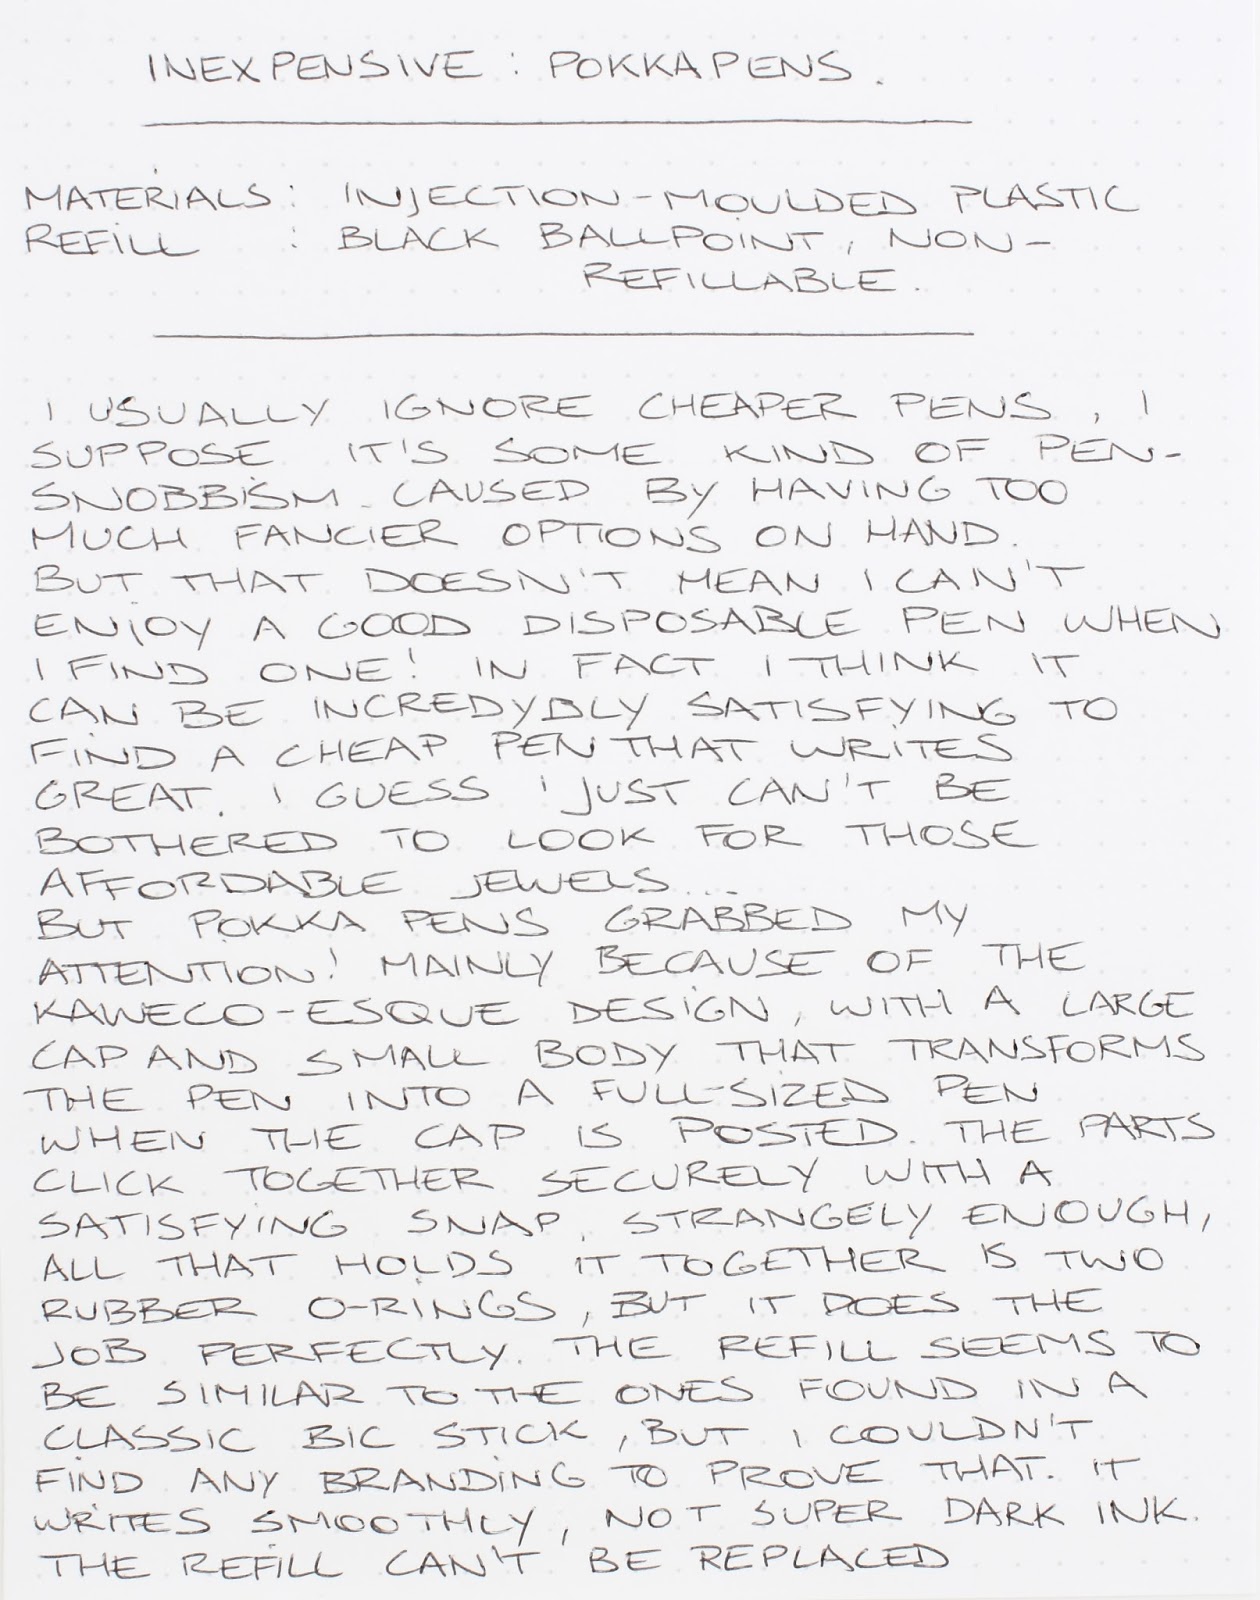 INEXPENSIVE : POKKA PENS.
MATERIALS : INJECTION-MOULDED PLASTIC
REFILL : BLACK BALLPOINT, NON-
REFILLABLE.
I USUALLY IGNORE CHEAPER PENS, I
SUPPOSE IT'S SOME KIND OF PEN-
SNOBBISM CAUSED BY HAVING TOO
MUCH FANCIER OPTIONS ON HAND.
BUT THAT DOESN'T MEAN I CAN'T
ENJOY A GOOD DISPOSABLE PEN WHEN
I FIND ONE! IN FACT I THINK IT
CAN BE INCREDYBLY SATISFYING TO
FIND A CHEAP PEN THAT WRITES
GREAT. I GUESS I JUST CAN'T BE
BOTHERED TO LOOK FOR THOSE
AFFORDABLE JEWELS...
BUT POKKA PENS GRABBED MY
ATTENTION! MAINLY BECAUSE OF THE
KAWECO-ESQUE DESIGN, WITH A LARGE
CAP AND SMALL BODY THAT TRANSFORMS
THE PEN INTO A FULL-SIZED PEN
WHEN THE CAP IS POSTED. THE PARTS
CLICK TOGETHER SECURELY WITH A
SATISFYING SNAP. STRANGELY ENOUGH,
ALL THAT HOLDS IT TOGETHER IS TWO
RUBBER O-RINGS, BUT IT DOES THE
JOB PERFECTLY. THE REFILL SEEMS TO
BE SIMILAR TO THE ONES FOUND IN A
CLASSIC BIC STICK, BUT I COULDN'T
FIND ANY BRANDING TO PROVE THAT. IT
WRITES SMOOTHLY, NOT SUPER DARK INK.
THE REFILL CAN'T BE REPLACED